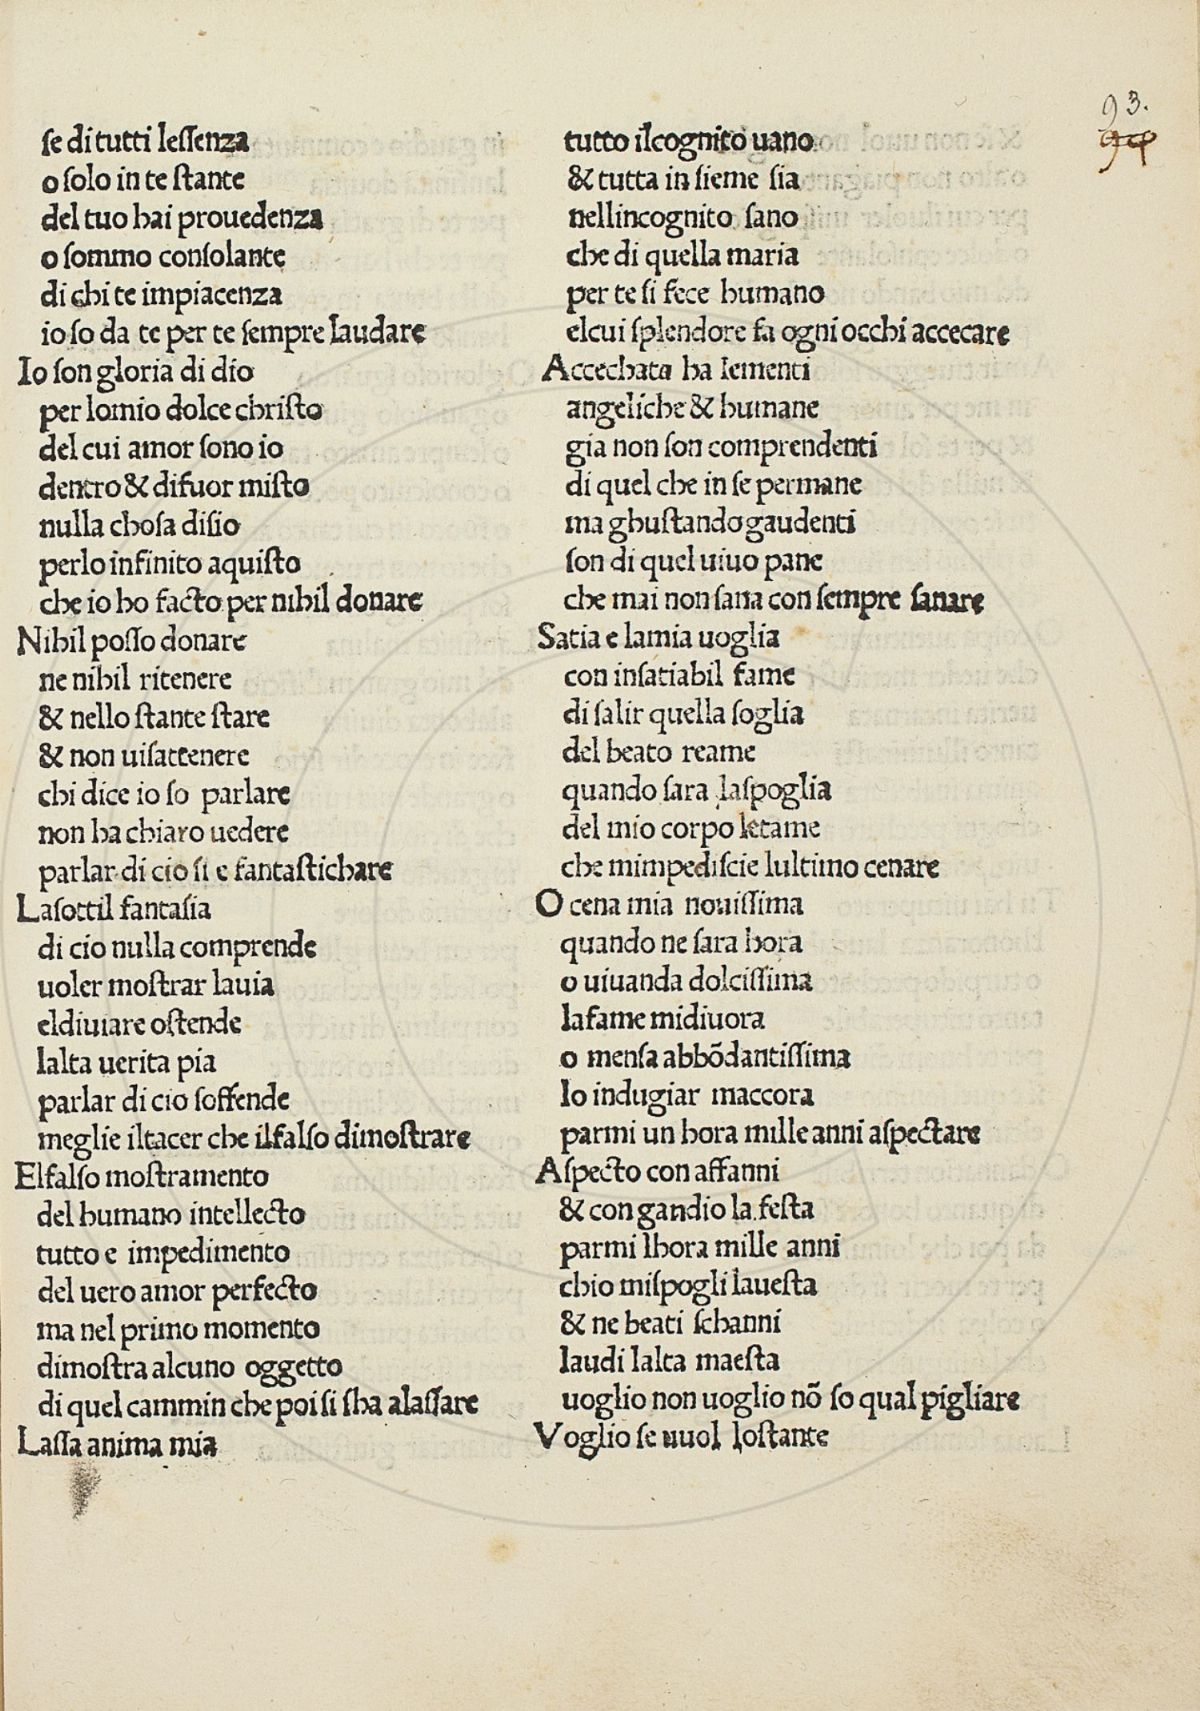 93.
94
se di tutti lessenza
o solo in te stante
del tuo hai prouedenza
o sommo consolante
di chi te impiacenza
io so da te per te sempre laudare
Io son gloria di dio
per lomio dolce christo
del cui amor sono io
dentro & difuor misto
nulla chosa disio
perlo infinito aquisto
che io ho facto per nihil donare
Nihil posso donare
ne nihil ritenere
& nello stante stare
& non uisattenere
chi dice io so parlare
non ha chiaro uedere
parlar di cio si e fantastichare
Lasottil fantasia
di cio nulla comprende
uoler mostrar lauia
eldiuiare ostende
lalta uerita pia
parlar di cio soffende
meglie iltacer che ilfalso dimostrare
Elfalso mostramento
del humano intellecto
tutto e impedimento
del uero amor perfecto
ma nel primo momento
dimostra alcuno oggetto
di quel cammin che poi si sha alassare
Lassa anima mia
tutto ilcognito uano
& tutta in sieme sia
nellincognito sano
che di quella maria
per te si fece humano
elcui splendore fa ogni occhi accecare
Accechata ha lementi
angeliche & humane
gia non son comprendenti
di quel che in se permane
ma ghustando gaudenti
son di quel uiuo pane
che mai non sana con sempre sanare
Satia e lamia uoglia
con insatiabil fame
di salir quella soglia
del beato reame
quando sara laspoglia
del mio corpo letame
che mimpediscie lultimo cenare
O cena mia nouissima
quando ne sara hora
o uiuanda dolcissima
lafame midiuora
o mensa abbōdantissima
lo indugiar maccora
parmi un hora mille anni aspectare
Aspecto con affanni
& con gandio la festa
parmi lhora mille anni
chio mispogli lauesta
& ne beati schanni
laudi lalta maesta
uoglio non uoglio nō so qual pigliare
Voglio se uuol lostante